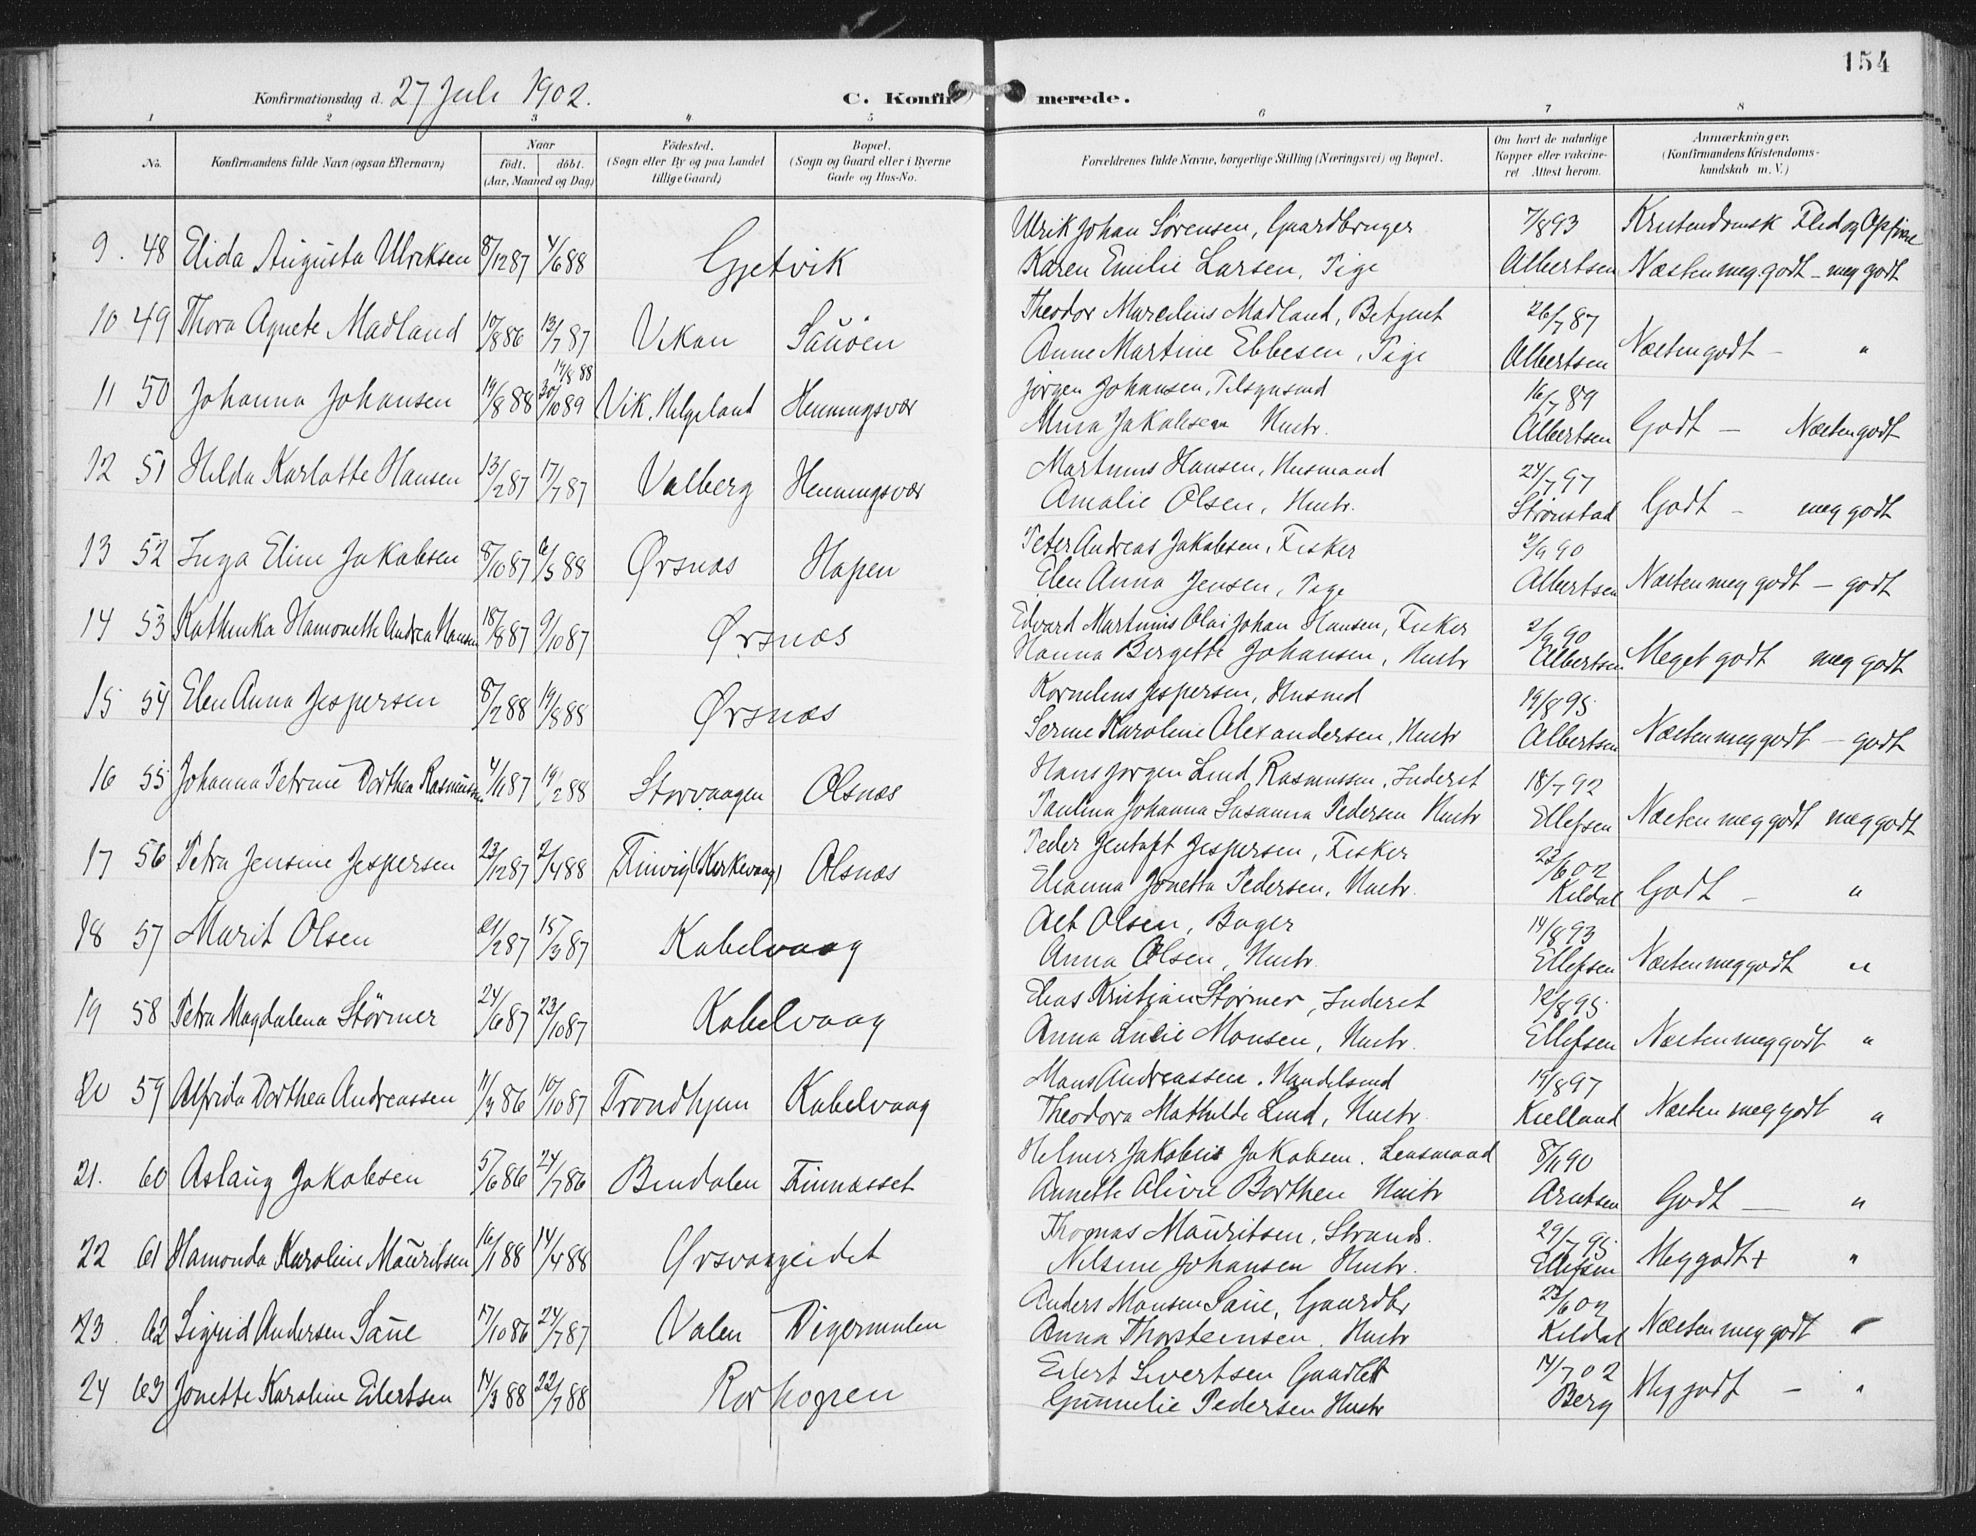 154
Konfirmationsdag d. 27 Juli 1902. C. Konfirmerede.
1 2 3 4 5 6 7 8
No. Konfirmandens fulde Navn (ogsaa Efternavn) Naar födt. döbt. (Aar, Maaned og Dag) Födested. (Sogn eller By og paa Landet tillige Gaard) Bopæl. (Sogn og Gaard eller i Byerne Gade og Hus-No. Forældrenes fulde Navne, borgerlige Stilling (Næringsvei) og Bopæl. Om havt de naturlige Kopper eller vakcineret Attest herom. Anmærkninger. (Konfirmandens Kristendomskundskab m. V.)
Ulrik Johan Sørensen, Gaardbruger 7/8 93 Kristendomsk Flid og Opførsel
9. 48 Elida Augusta Ulriksen 8/12 87 4/6 88 Gjetvik Karen Emilie Larsen, Pige Albertsen Næsten meg. godt - meg godt
Theodor Marcelius Madland, Betjent 26/7 87
10 49 Thora Agnete Madland 10/8 86 13/7 87 Vikan Sauøen Anne Martine Ebbesen, Pige Albertsen Næsten godt - "
14/8 88 Jørgen Johansen, Tilsynsmd 16/7 89
11 50 Johanna Johansen 14/8 88 30/10 89 Vik. Helgeland Henningsvær Mina Jakobsen Hustr. Albertsen Godt - Næsten godt
Martinus Hansen, Husmand 24/7 97
12 51 Hilda Karlotte Hansen 13/2 87 17/7 87 Valberg Henningsvær Amalie Olsen, Hustr. Strønstad Godt - meg godt
Peter Andreas Jakobsen, Fisker 2/9 90
13 52 Inga Eline Jakobsen 8/10 87 6/5 88 Ørsnæs Hopen Elen Anna Jensen, Pige Albertsen Næsten meg godt - godt
Edvard Martinus Olai Johan Hansen, Fisker 2/9 90
14 53 Kathinka Hamonette Andrea Hansen 18/8 87 9/10 87 Ørsnæs Hanna Bergette Johansen, Hustr Albertsen Meget godt meg godt
Kornelius Jespersen, Husmd 19/8 95
15 54 Elen Anna Jespersen 8/2 88 19/8 88 Ørsnæs Serine Karoline Alexandersen, Hustr Albertsen Næsten meg godt - godt
Hans Jørgen Lind Rasmussen, Inderst 18/7 92
16 55 Johanna Petrine Dorthea Rasmussen 4/11 87 19/2 88 Storvaagen Olsnæs Paulina Johanna Susanna Pedersen Hustr Ellefsen Næsten meg godt meg godt
Peder Jentoft Jespersen, Fisker 23/6 02
17 56 Petra Jensine Jespersen 23/12 87 2/4 88 Finvig (Kirkevaag) Olsnæs Elianna Jonetta Pedersen, Hustr. Kildal Godt - "
Alt Olsen, Bager 14/8 93
18 57 Marit Olsen 21/2 87 15/3 87 Kabelvaag Anna Olsen, Hustr. Ellefsen Næsten meg godt "
Elias Kristian Størmer, Inderst 12/8 95
19 58 Petra Magdalena Störmer 24/6 87 23/10 87 Kabelvaag Anna Lucie Monsen, Hustr. Ellefsen Næsten meg godt "
Mons Andreassen. Handelsmd 19/8 97
20 59 Alfrida Dorthea Andreassen 11/3 86 10/10 87 Trondhjem Kabelvaag Theodora Mathilde Lind, Hustr. Kielland Næsten meg godt "
Helmer Jakobsen. Lensmand 8/11 90
21. 60 Aslaug Jakobsen 5/6 86 24/7 86 Bindalen Finnæsset Annette Olive Borthen Hustr Arntsen Godt - "
Thomas Mauritsen, Strands. 29/7 95
22 61 Hamonda Karoline Mauritsen 16/1 88 14/4 88 Ørsvaageidet Nilsine Johansen Hustr. Ellefsen Meg godt + "
Anders Monsen Saue, Gaardbr 23/6 02
23. 62 Sigrid Andersen Saue 17/10 86 24/7 87 Valen Digermulen Anna Thorsteinsen. Hustr Kildal Næsten meg godt "
Eilert Sivertsen 14/7 02
24 63 Jonette Karoline Eilertsen 14/3 88 22/7 88 Rorhopen Gunnelie Pedersen Hustr Berg Meg godt - "